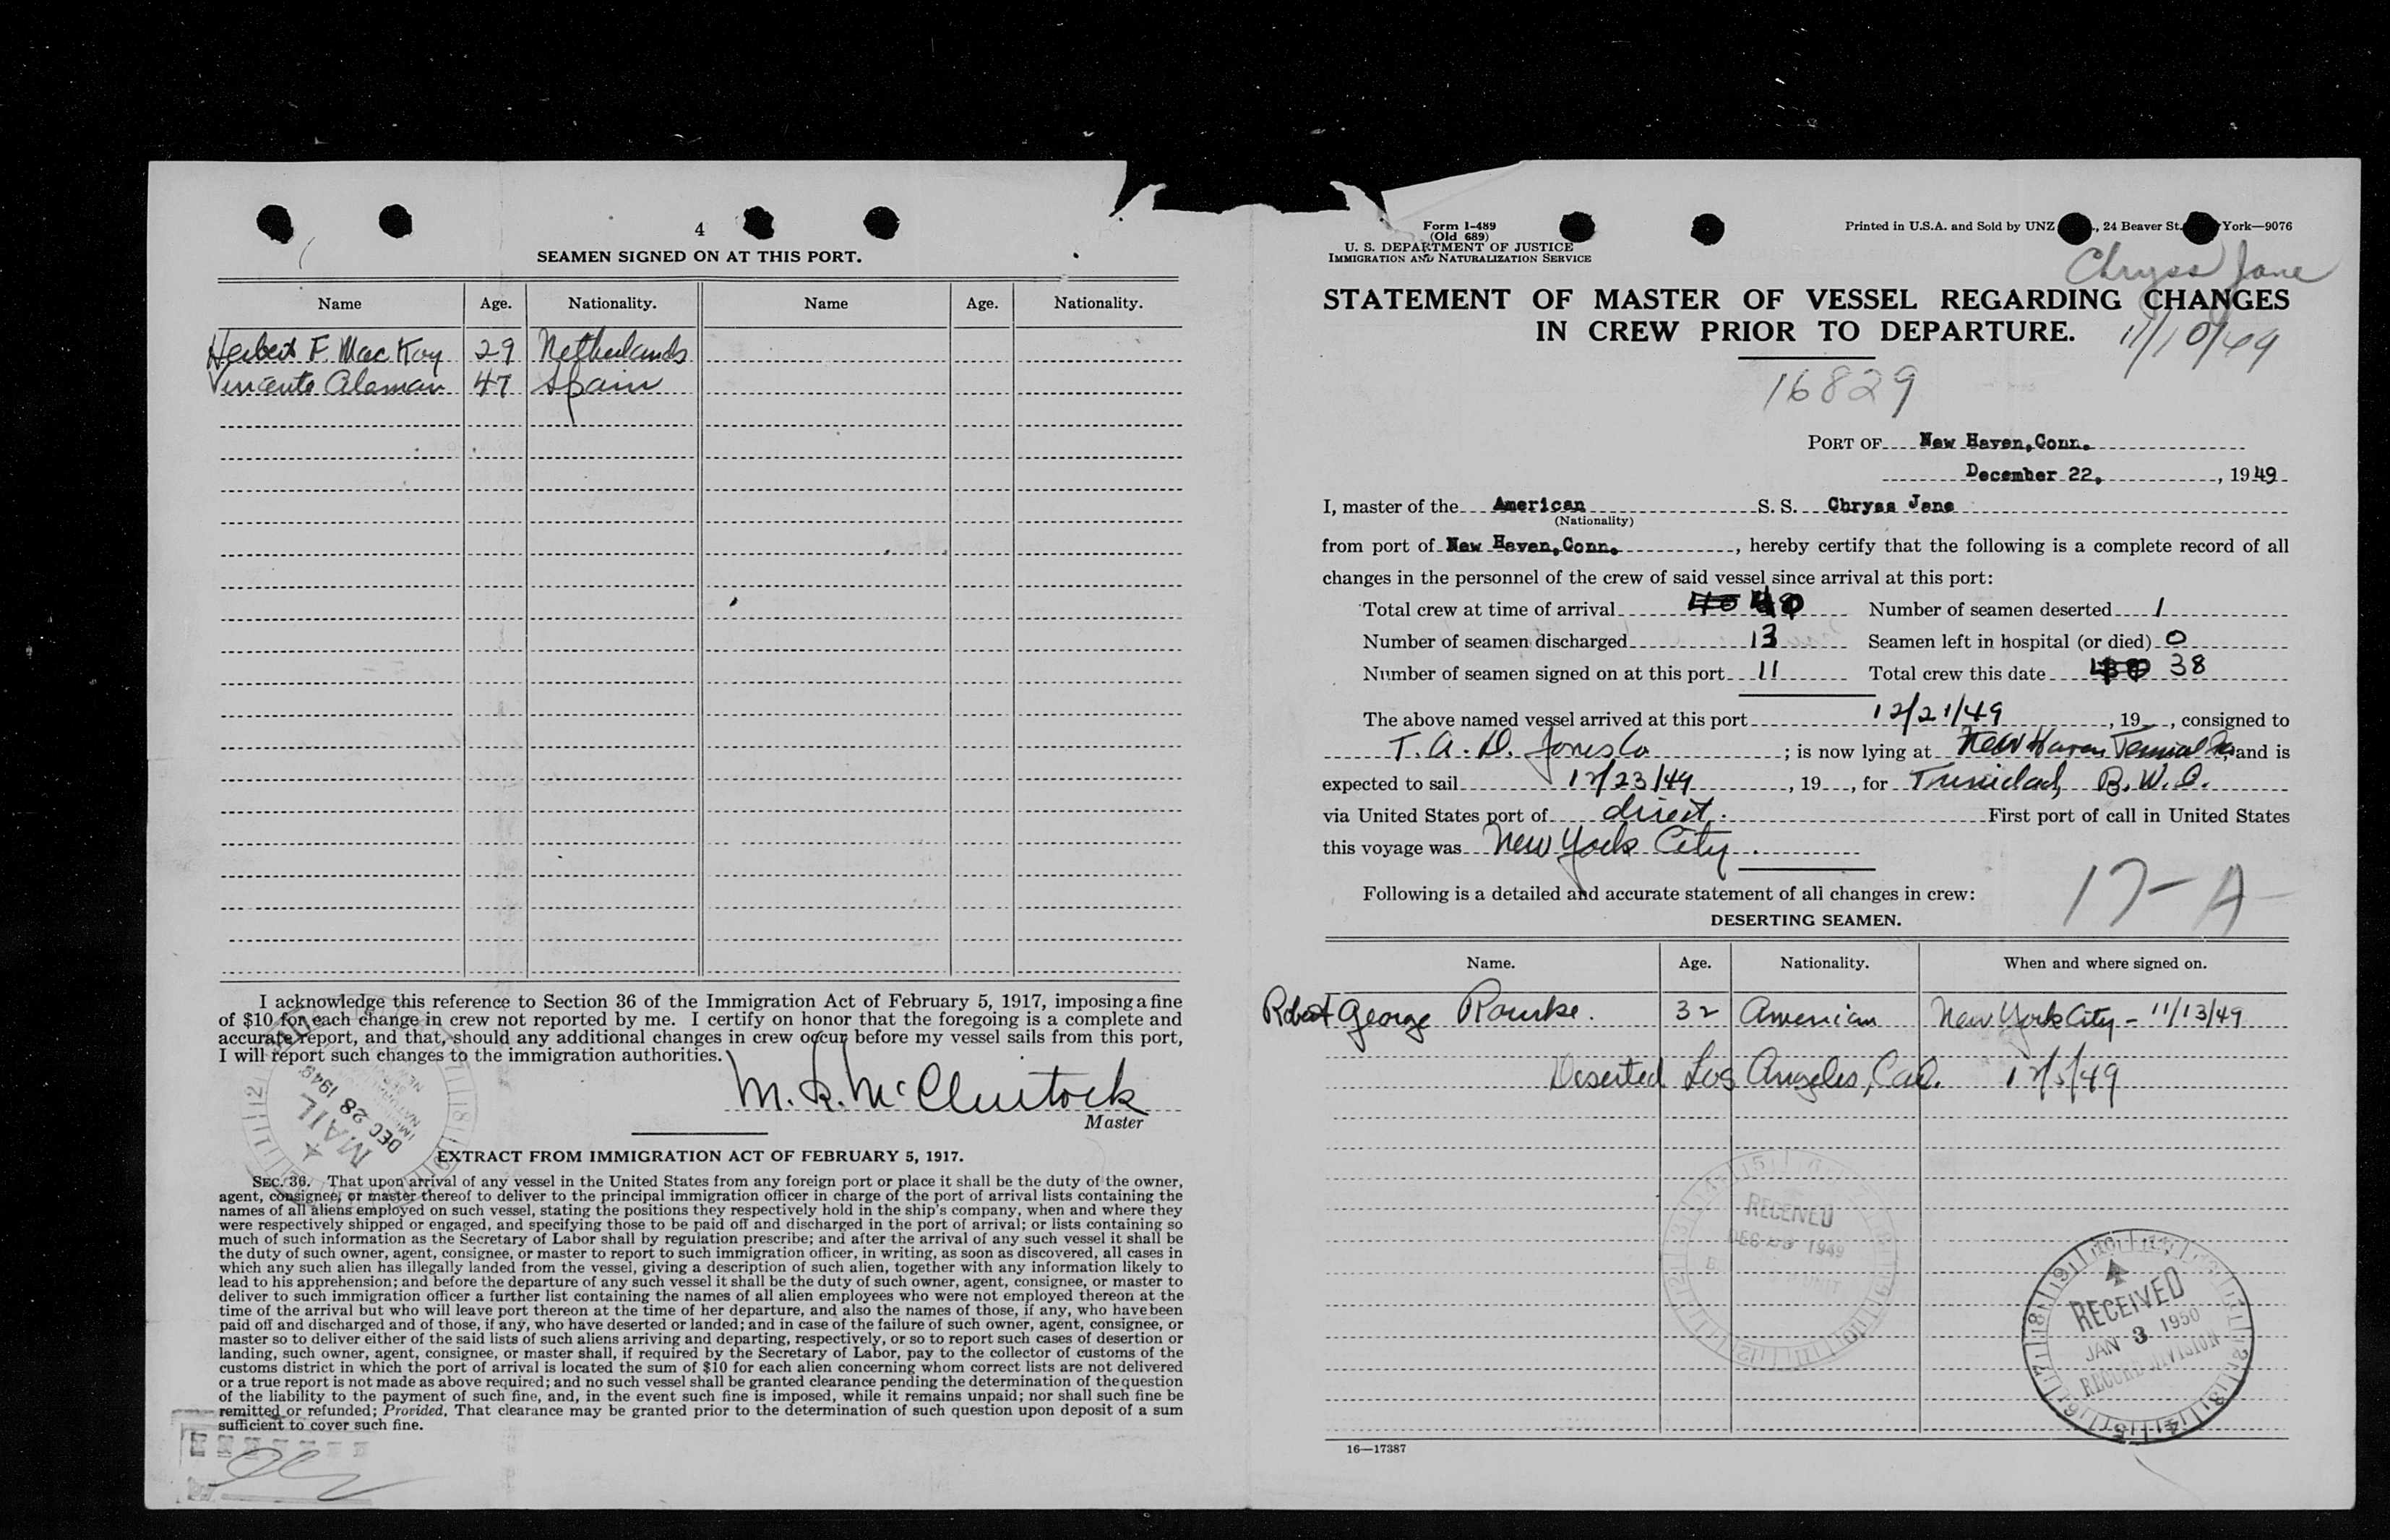 4
SEAMEN SIGNED ON AT THIS PORT.
Name Age. Nationality. Name Age. Nationality.
Herbert F. Mac Kay 29 Netherlands
Vincente Aleman 47 Spain
I acknowledge this reference to Section 36 of the Immigration Act of February 5, 1917, imposing a fine
of $10 for each change in crew not reported by me. I certify on honor that the foregoing is a complete and
accurate report, and that, should any additional changes in crew occur before my vessel sails from this port,
I will report such changes to the immigration authorities.
M. R. McClintock
Master
MAIL
DEC 28 1949
EXTRACT FROM IMMIGRATION ACT OF FEBRUARY 5, 1917.
SEC. 36. That upon arrival of any vessel in the United States from any foreign port or place it shall be the duty of the owner,
agent, consignee, or master thereof to deliver to the principal immigration officer in charge of the port of arrival lists containing the
names of all aliens employed on such vessel, stating the positions they respectively hold in the ship's company, when and where they
were respectively shipped or engaged, and specifying those to be paid off and discharged in the port of arrival; or lists containing so
much of such information as the Secretary of Labor shall by regulation prescribe; and after the arrival of any such vessel it shall be
the duty of such owner, agent, consignee, or master to report to such immigration officer, in writing, as soon as discovered, all cases in
which any such alien has illegally landed from the vessel, giving a description of such alien, together with any information likely to
lead to his apprehension; and before the departure of any such vessel it shall be the duty of such owner, agent, consignee, or master to
deliver to such immigration officer a further list containing the names of all alien employees who were not employed thereon at the
time of the arrival but who will leave port thereon at the time of her departure, and also the names of those, if any, who have been
paid off and discharged and of those, if any, who have deserted or landed; and in case of the failure of such owner, agent, consignee, or
master so to deliver either of the said lists of such aliens arriving and departing, respectively, or so to report such cases of desertion or
landing, such owner, agent, consignee, or master shall, if required by the Secretary of Labor, pay to the collector of customs of the
customs district in which the port of arrival is located the sum of $10 for each alien concerning whom correct lists are not delivered
or a true report is not made as above required; and no such vessel shall be granted clearance pending the determination of the question
of the liability to the payment of such fine, and, in the event such fine is imposed, while it remains unpaid; nor shall such fine be
remitted or refunded; Provided, That clearance may be granted prior to the determination of such question upon deposit of a sum
sufficient to cover such fine.
Form I-489
(Old 689)
U. S. DEPARTMENT OF JUSTICE
IMMIGRATION AND NATURALIZATION SERVICE
Printed in U.S.A. and Sold by UNZ , 24 Beaver St. York—9076
Chryss Jane
STATEMENT OF MASTER OF VESSEL REGARDING CHANGES
IN CREW PRIOR TO DEPARTURE.
11/10/49
16829
PORT OF New Haven, Conn.
December 22, , 1949
I, master of the American S. S. Chryss Jane
(Nationality)
from port of New Haven, Conn. , hereby certify that the following is a complete record of all
changes in the personnel of the crew of said vessel since arrival at this port:
Total crew at time of arrival 40 Number of seamen deserted 1
Number of seamen discharged 13 Seamen left in hospital (or died) 0
Number of seamen signed on at this port 11 Total crew this date 38
The above named vessel arrived at this port 12/21/49 , 19 , consigned to
T. A. D. Jones Co ; is now lying at New Haven Terminal and is
expected to sail 12/23/49 , 19 , for Trinidad, B. W. I.
via United States port of direct. First port of call in United States
this voyage was New York City.
Following is a detailed and accurate statement of all changes in crew:
17-A
DESERTING SEAMEN.
Name. Age. Nationality. When and where signed on.
Robert George Rourke. 32 American New York City - 11/13/49
Deserted Los Angeles, Cal. 12/5/49
RECEIVED
1949
UNIT
RECEIVED
JAN 3 1950
RECORD DIVISION
16—17387